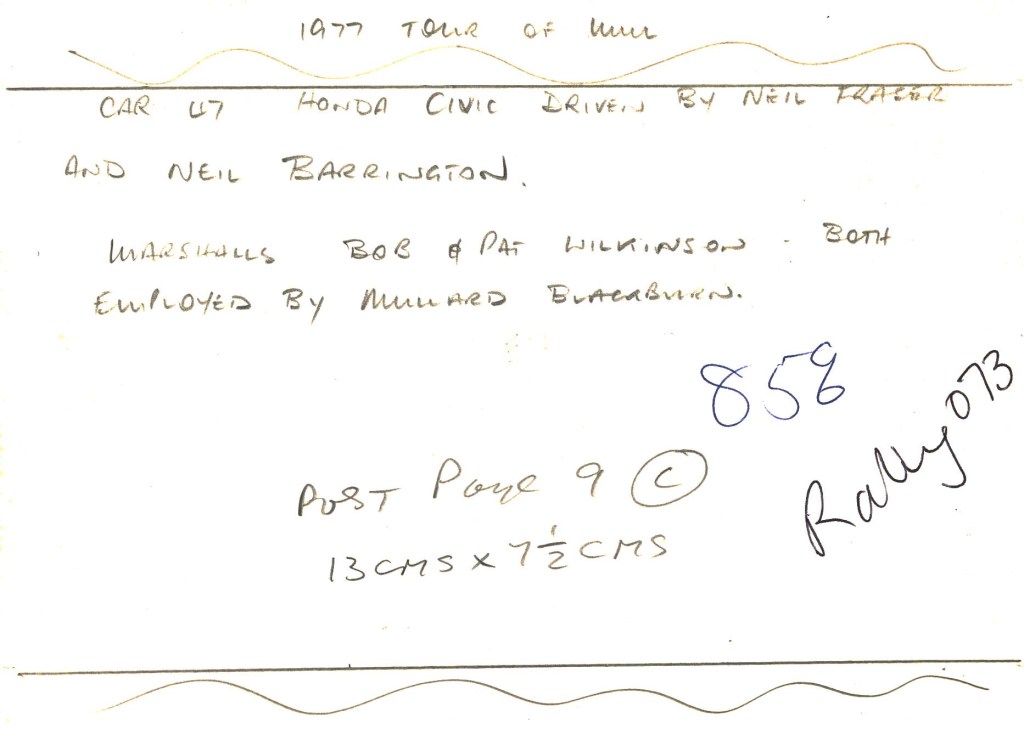 1977 TOUR OF MULL
CAR 47 HONDA CIVIC DRIVEN BY NEIL FRASER
AND NEIL BARRINGTON.
MARSHALLS BOB & PAT WILKINSON - BOTH
EMPLOYED BY MULLARD BLACKBURN.
858
Rally 073
POST Page 9 C
13 CMS X 7 1/2 CMS